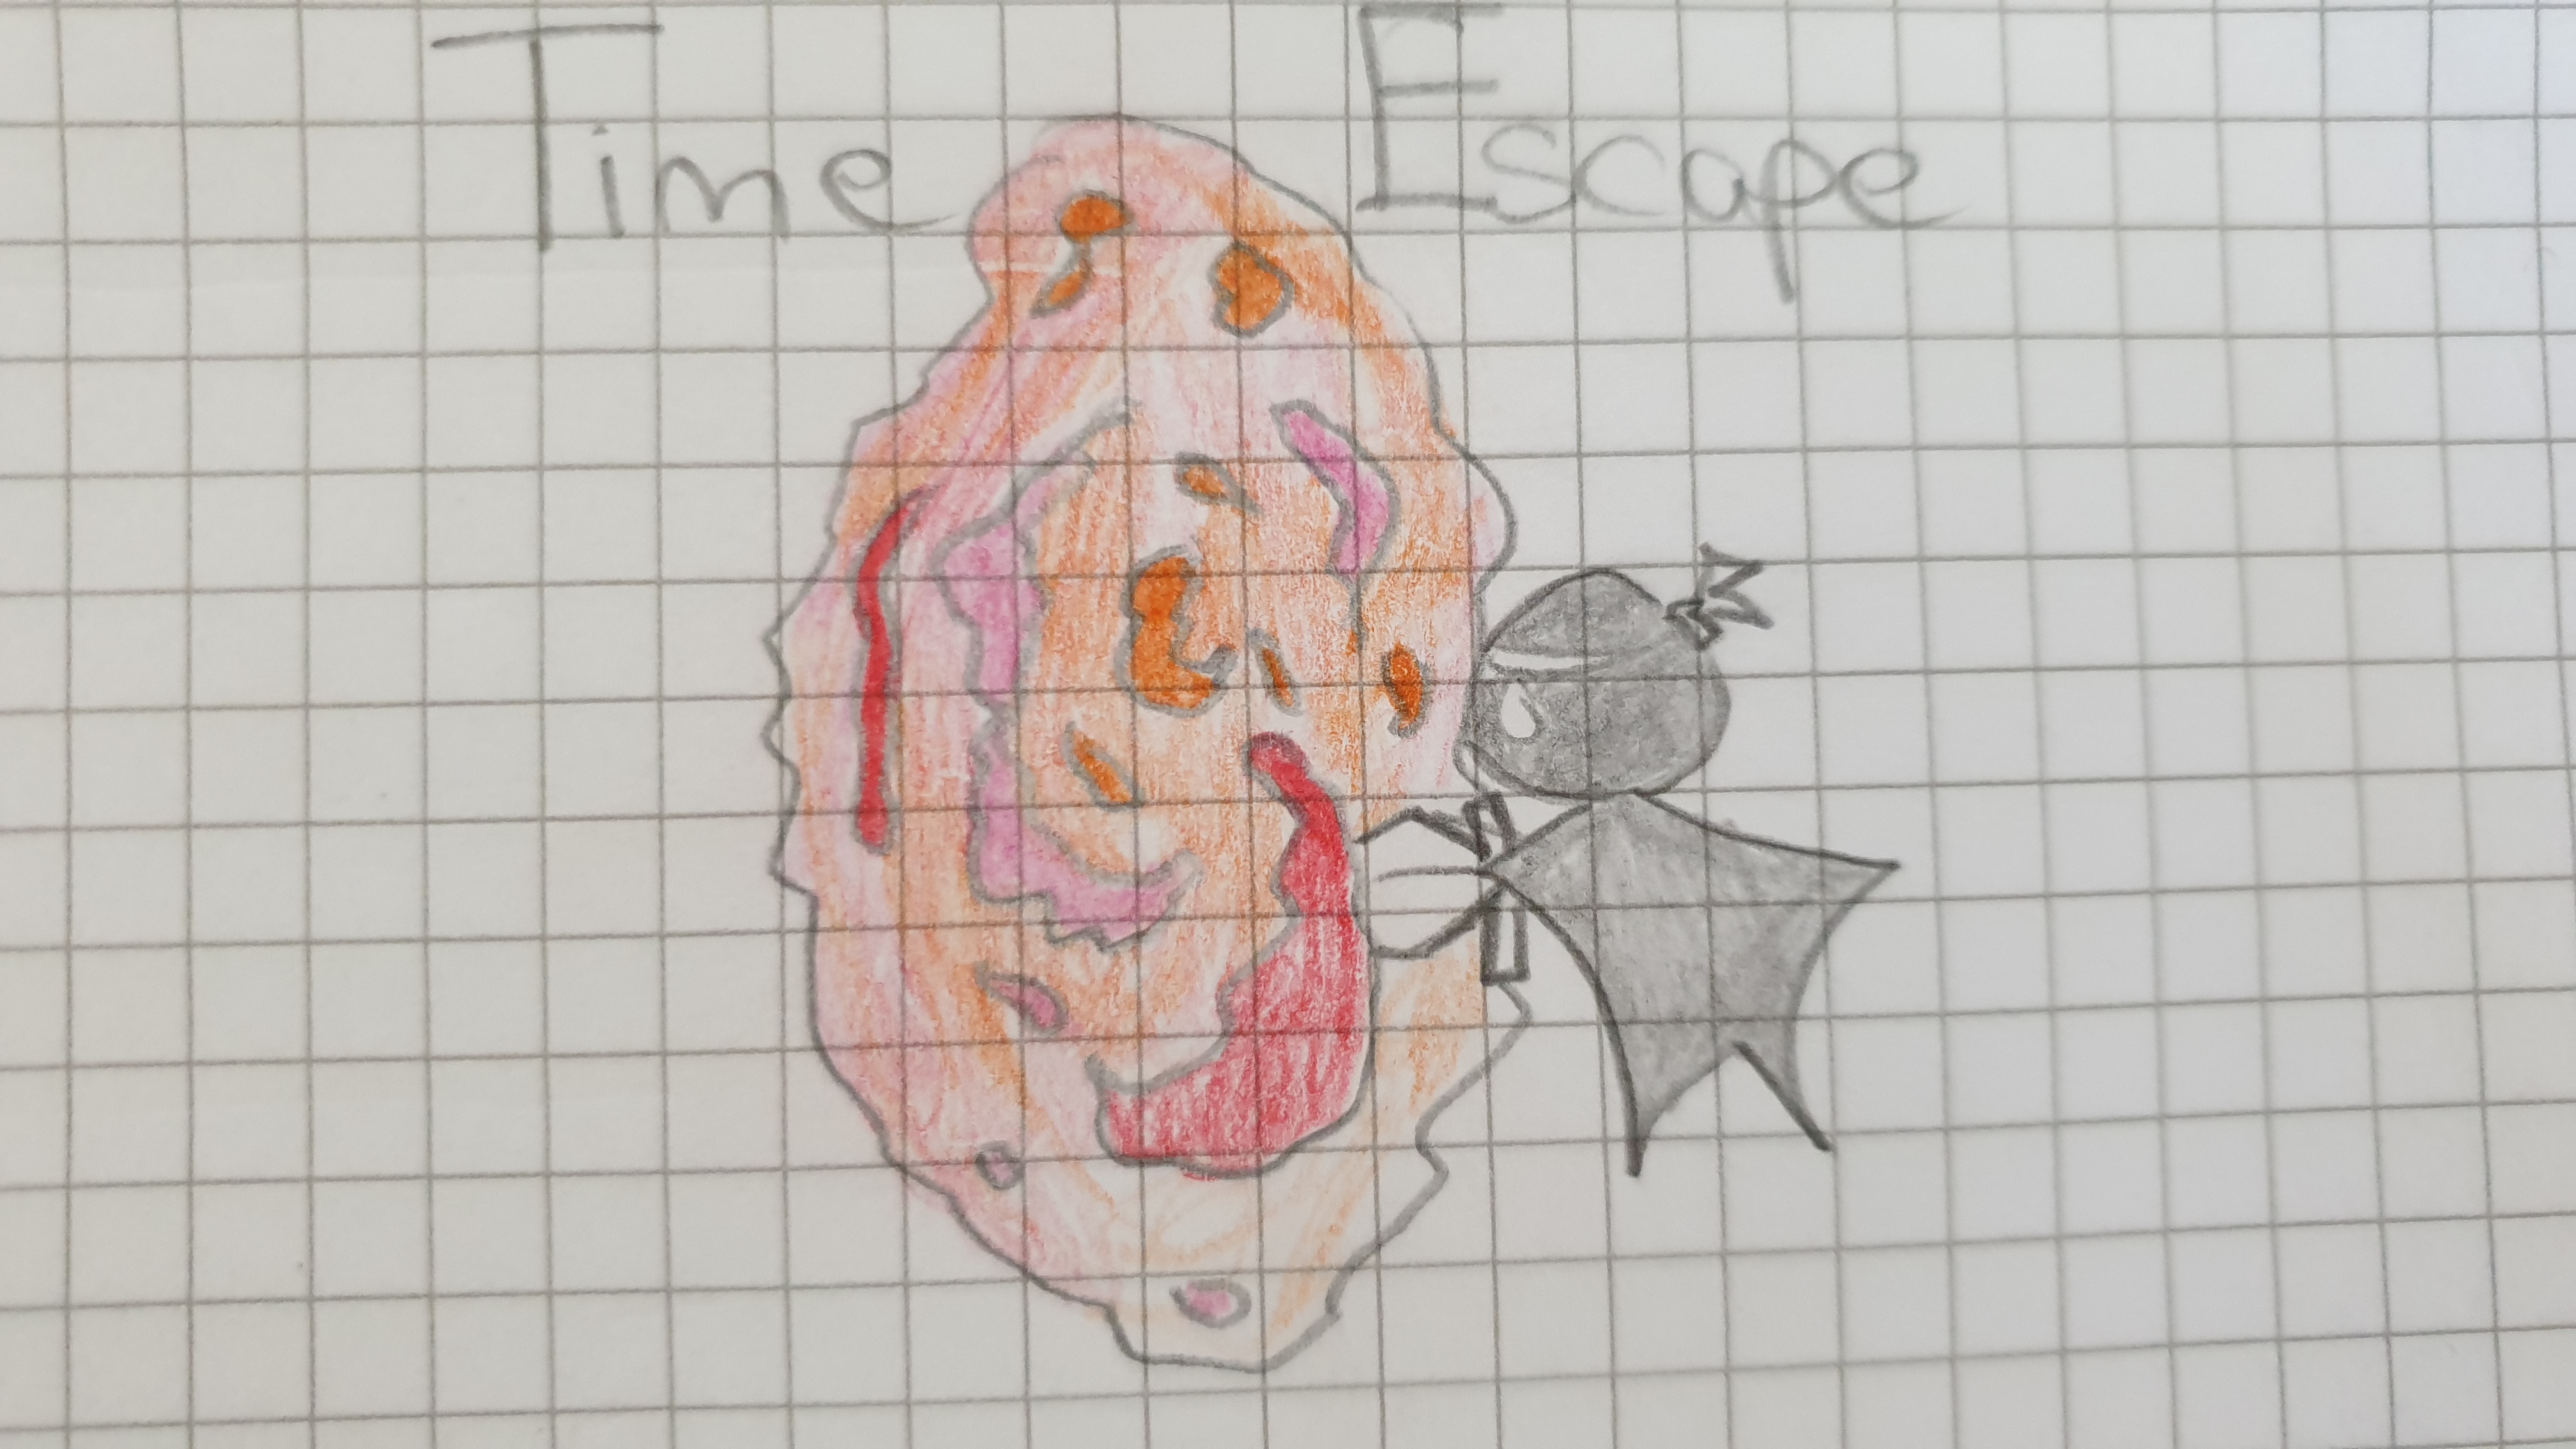 Time Escape